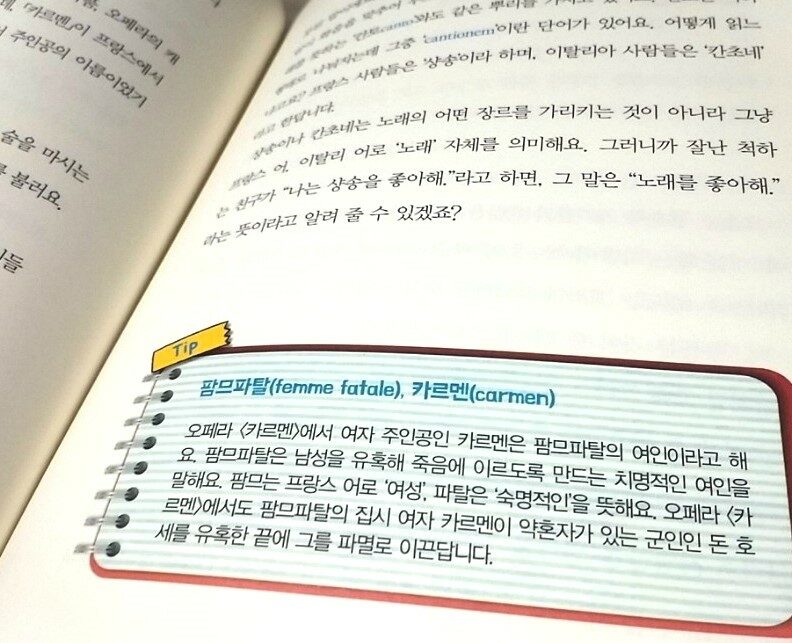 오페라의 캐
『카르멘』이 프랑스에서
주인공의 이름이었기
술을 마시는
불러요.
맞추어
canto와도 같은 뿌리를
나눠지는데 그중 'cantionem'이란 단어가 있어요. 어떻게 읽느
냐고요? 프랑스 사람들은 '샹송'이라 하며, 이탈리아 사람들은 '칸초네'
라고 한답니다.
샹송이나 칸초네는 노래의 어떤 장르를 가리키는 것이 아니라 그냥
프랑스 어, 이탈리 어로 '노래' 자체를 의미해요. 그러니까 잘난 척하
는 친구가 "나는 샹송을 좋아해."라고 하면, 그 말은 "노래를 좋아해."
라는 뜻이라고 알려 줄 수 있겠죠?
Tip
팜므파탈(femme fatale), 카르멘(carmen)
오페라 〈카르멘〉에서 여자 주인공인 카르멘은 팜므파탈의 여인이라고 해
요. 팜므파탈은 남성을 유혹해 죽음에 이르도록 만드는 치명적인 여인을
말해요. 팜므는 프랑스 어로 '여성', 파탈은 '숙명적인'을 뜻해요. 오페라 〈카
르멘〉에서도 팜므파탈의 집시 여자 카르멘이 약혼자가 있는 군인인 돈 호
세를 유혹한 끝에 그를 파멸로 이끈답니다.